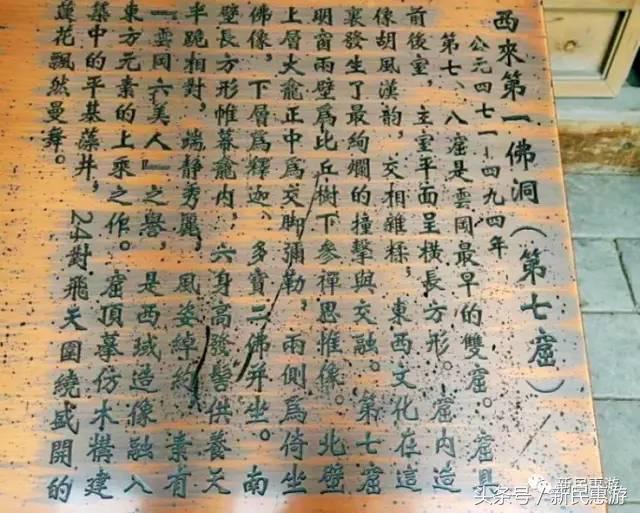 西來第一佛洞（第七窟）
公元四七一-四九四年
第七、八窟是雲岡最早的雙窟。窟具
前後室，主室平面呈橫長方形。窟内造
像胡風漢韵，交相雜糅，東西文化在這
裏發生了最絢爛的撞擊與交融。第七窟
明窗兩壁爲比丘樹下參禪思惟像。北壁
上層大龕正中爲交脚彌勒，兩側爲倚坐
佛像，下層爲釋迦、多寶二佛并坐。南
壁長方形帷幕龕内，六身高發髻供養天
半跪相對，端静秀麗，風姿綽約，素有
『雲岡六美人』之譽，是西域造像融入
東方元素的上乘之作。窟頂摹仿木構建
築中的平基藻井，24對飛天圍繞盛開的
蓮花飄然曼舞。
新民惠游
头条号/新民惠游